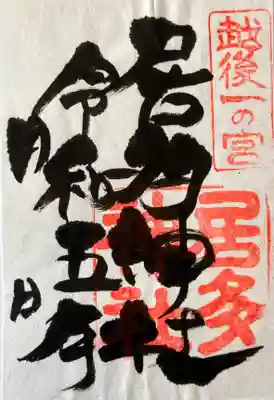 越後一の宮
居多
神社
居多神社
令和五年
月 日